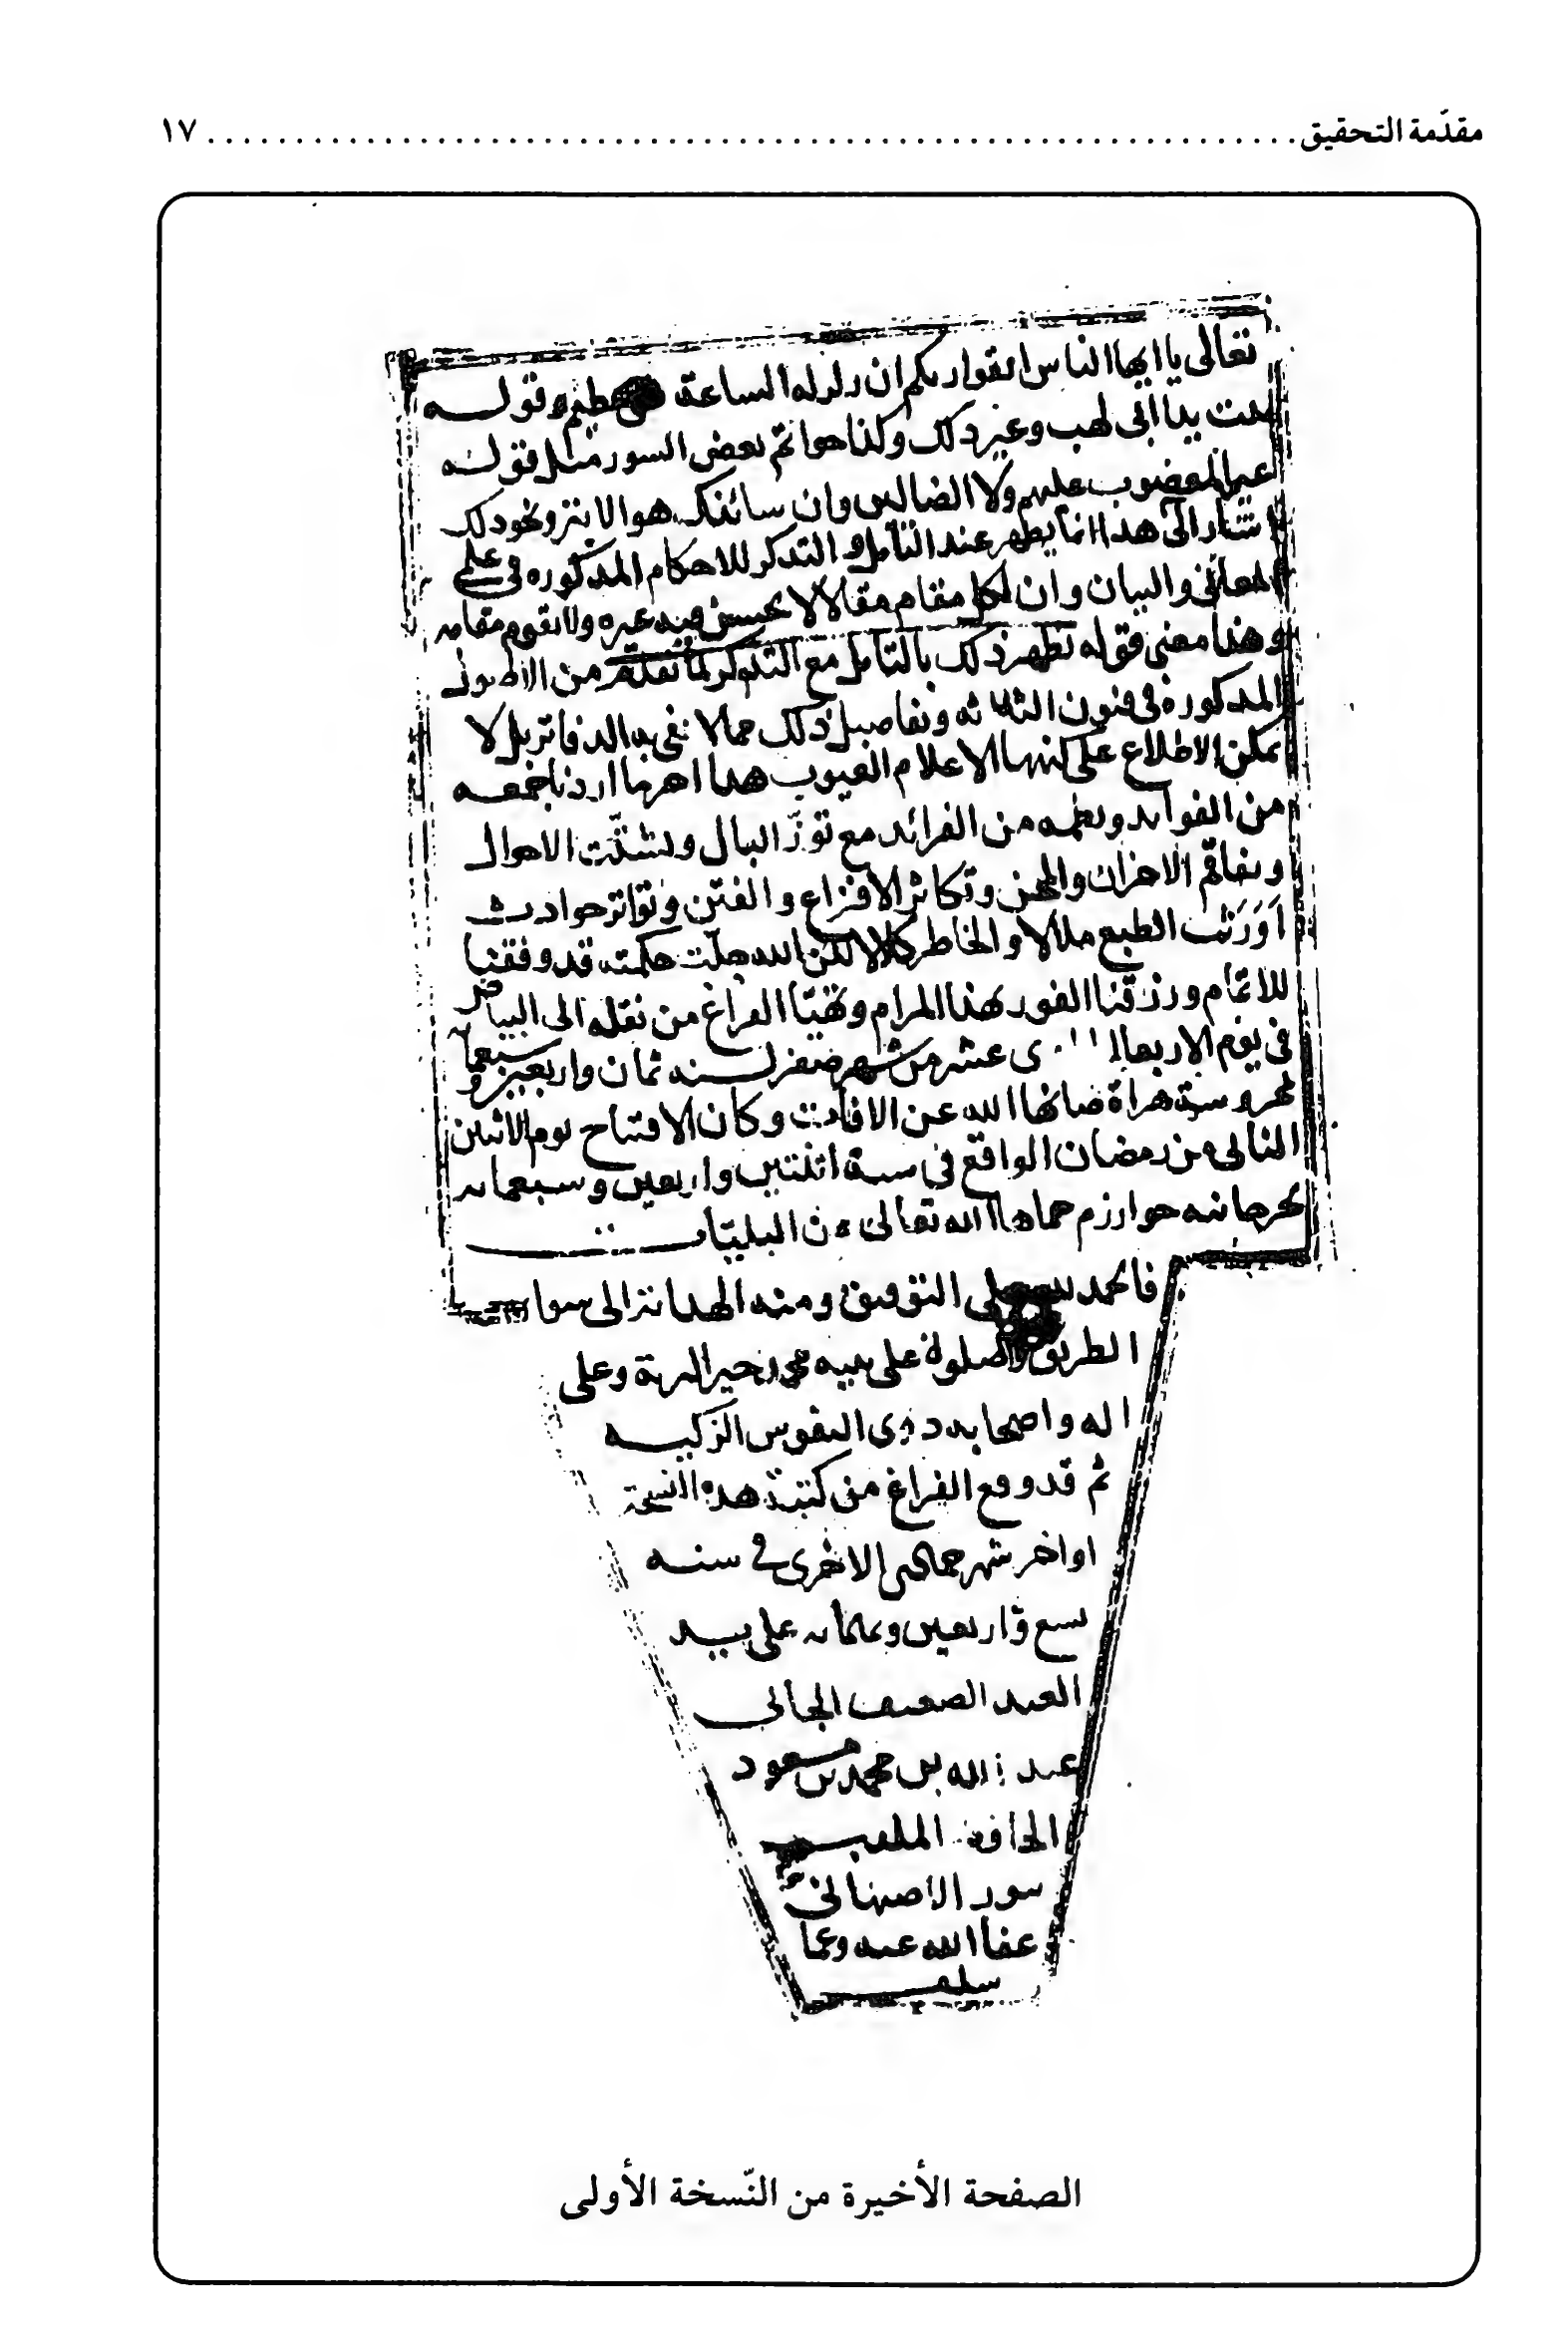 مقدّمة التحقيق ........ ١٧
تعالى يا ايها الناس اتقوا ربكم ان زلزلة الساعة شىء عظيم وقوله
تبت يدا ابى لهب وغير ذلك وكذا خواتم بعض السور مثل قوله
غير المغضوب عليهم ولا الضالين وان شانئك هو الابتر ونحو ذلك
اشار الى هذا انما يظهر عند التأمل والتذكر للاحكام المذكورة فى علمى
المعانى والبيان وان لكل مقام مقالا لا يحسن فيه غيره ولا يقوم مقامه
وهذا معنى قوله يظهر ذلك بالتأمل مع التذكر لما تقدم من الاصول
المذكورة فى فنون الثلاثة وتفاصيل ذلك مما لا تفى به الدفاتر بل لا
يمكن الاطلاع على كنهها الا علام الغيوب هذا اخر ما اردنا جمعه
من الفوائد ونظمه من الفرائد مع توزّع البال وتشتّت الاحوال
وتفاقم الاحزان والمحن وتكاثر الافزاع والفتن وتواتر حوادث
اورثت الطبع ملالا والخاطر كلالا لكن الله جلت حكمته قد وفقنا
للاتمام ورزقنا الفوز بهذا المرام وتهيّأ الفراغ من نقله الى البياض
فى يوم الاربعاء عشر من شهر صفر لسنه ثمان واربعين وسبعمائه
بمحروسة هراة صانها الله عن الافات وكان الافتتاح يوم الاثنين
الثانى من رمضان الواقع فى سنة اثنتين واربعين وسبعمائه
بجرجانيه خوارزم حماها الله تعالى من البليّات
فالحمد لله على التوفيق ومنه الهداية الى سواء
الطريق والصلوة على نبيه محمد خير البرية وعلى
اله واصحابه ذوى النفوس الزكيه
ثم قد وقع الفراغ من كتبة هذه النسخة
اواخر شهر جمادى الاخرى فى سنه
واربعين وثمانمائه على يد
العبد الضعيف الجانى
عبد الله بن محمد بن مسعود
الحافظ الملقب
الاصفهانى
عفا الله عنه وعما
سلف
الصفحة الأخيرة من النّسخة الأولى